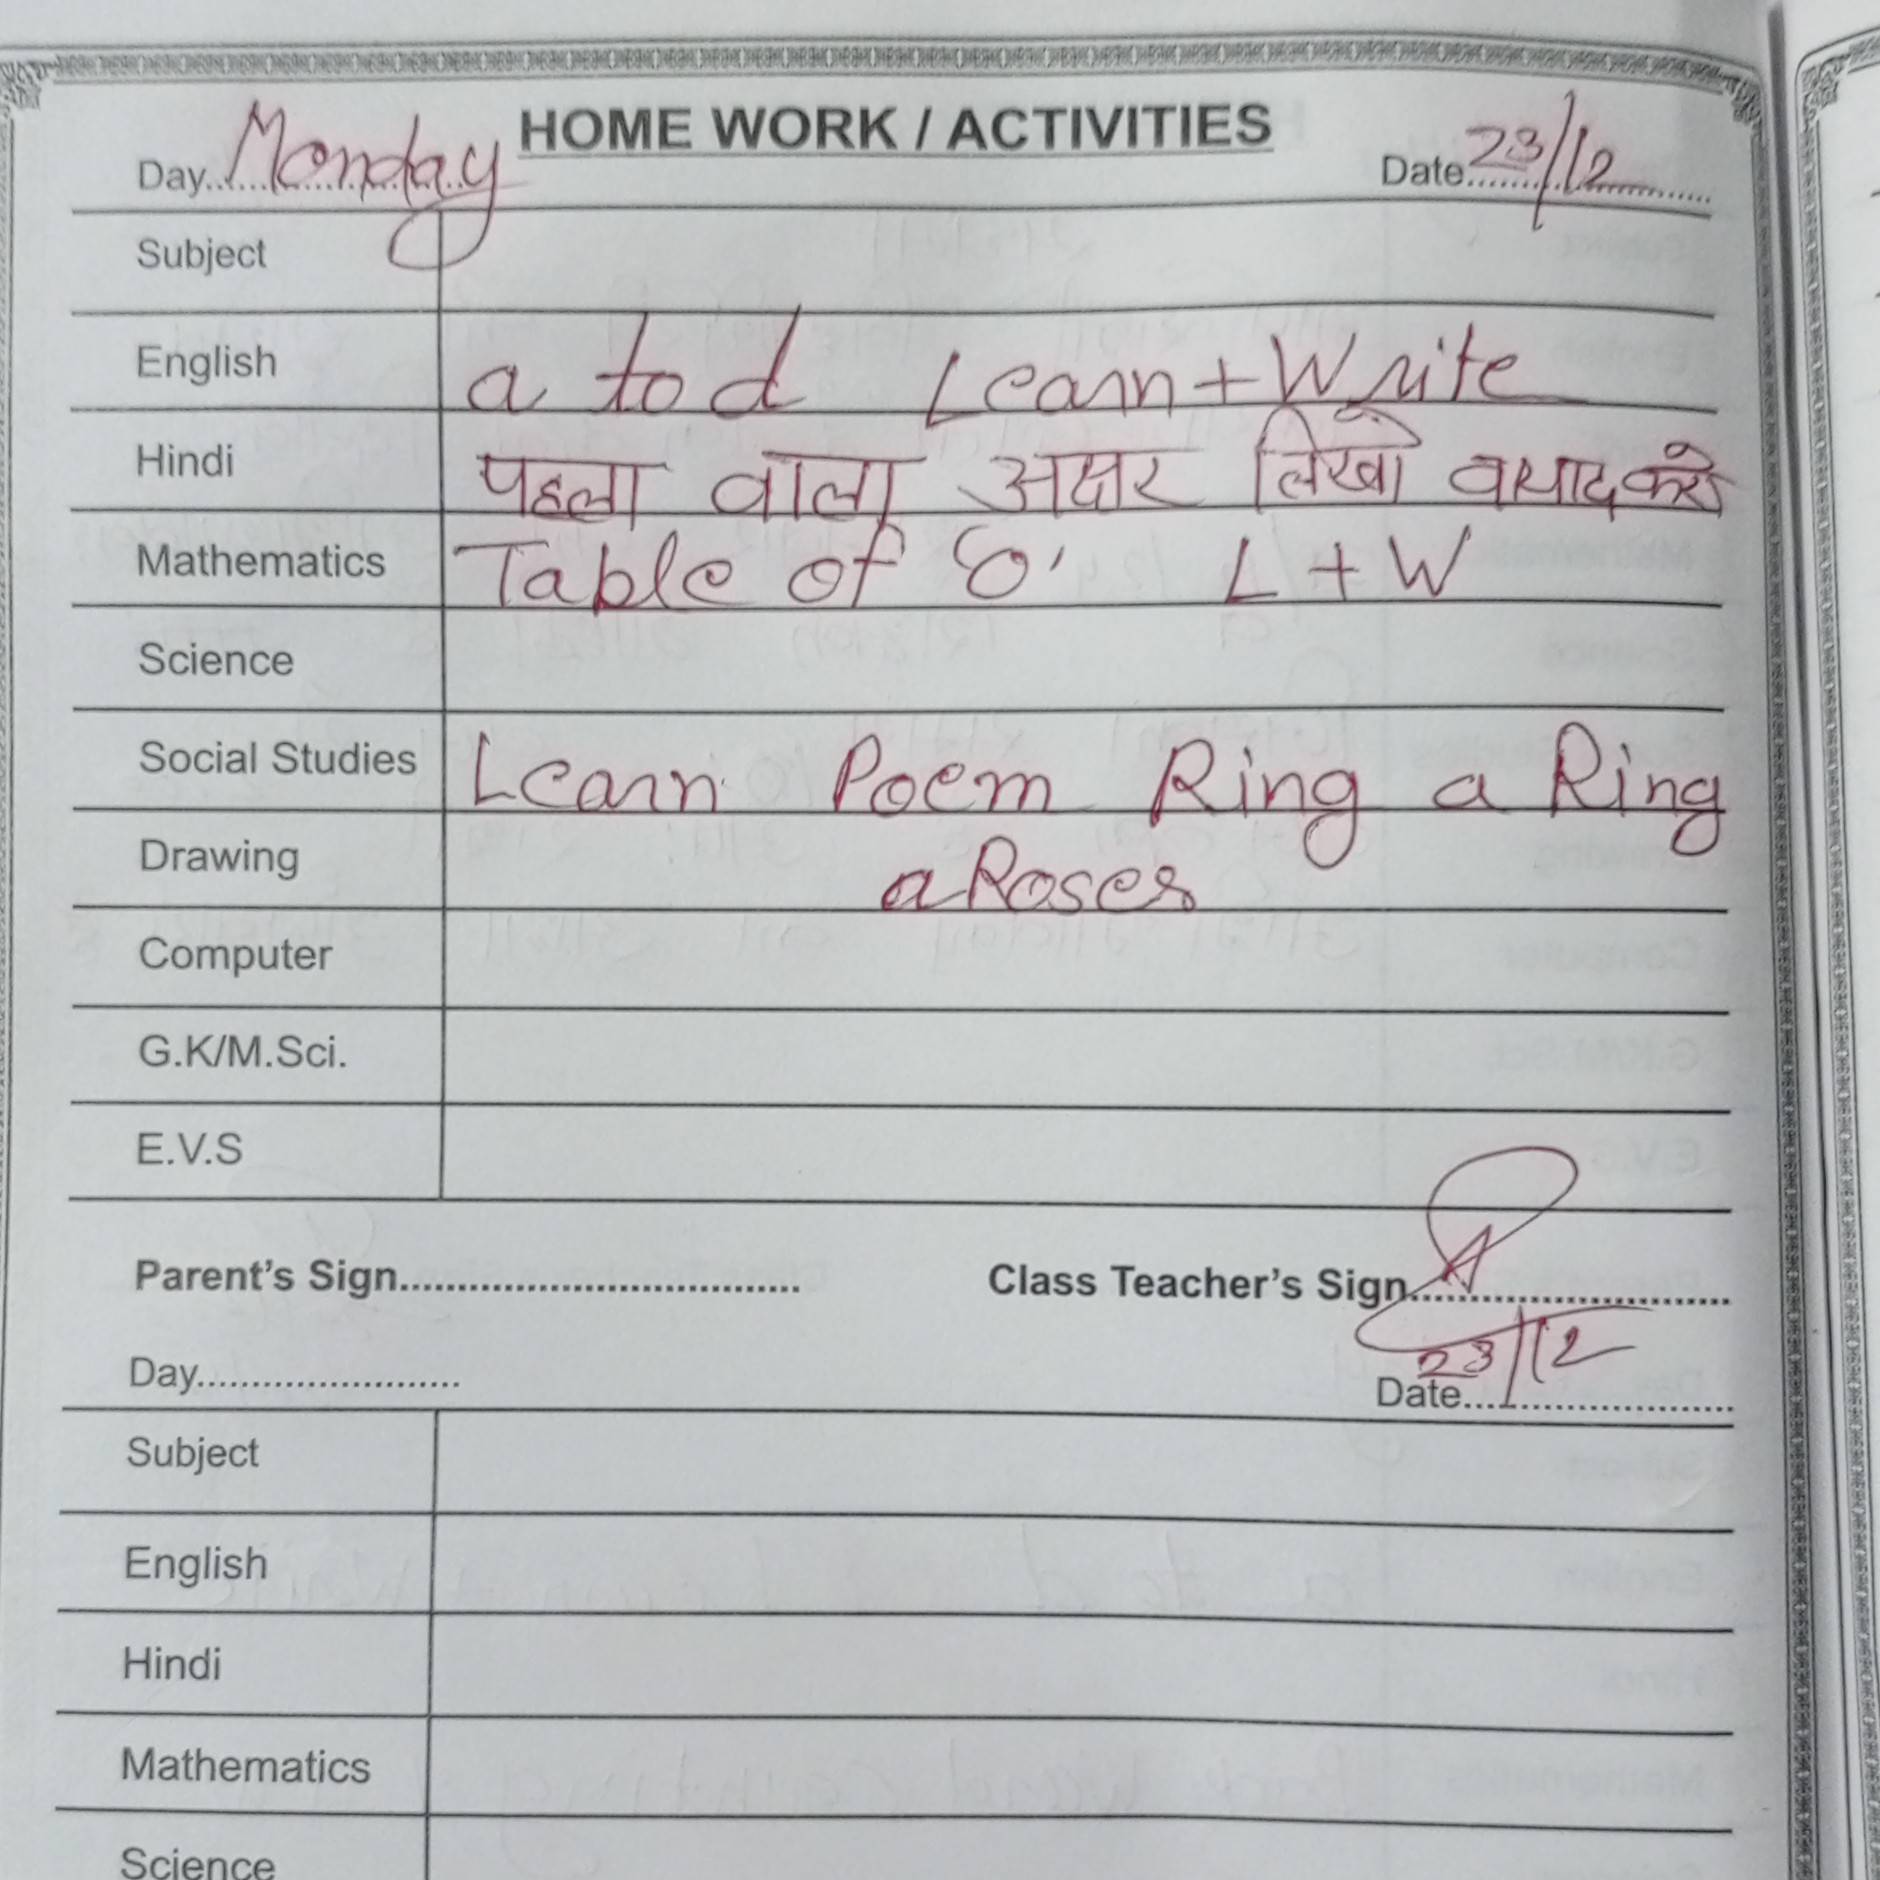 HOME WORK / ACTIVITIES
Day Monday Date 23/12
Subject
English a to d Learn + Write
Hindi पहला वाला अक्षर लिखो व याद करो
Mathematics Table of 8' L + W
Science
Social Studies Learn Poem Ring a Ring
Drawing a Roses
Computer
G.K/M.Sci.
E.V.S
Parent's Sign Class Teacher's Sign
23/12
Day Date
Subject
English
Hindi
Mathematics
Science